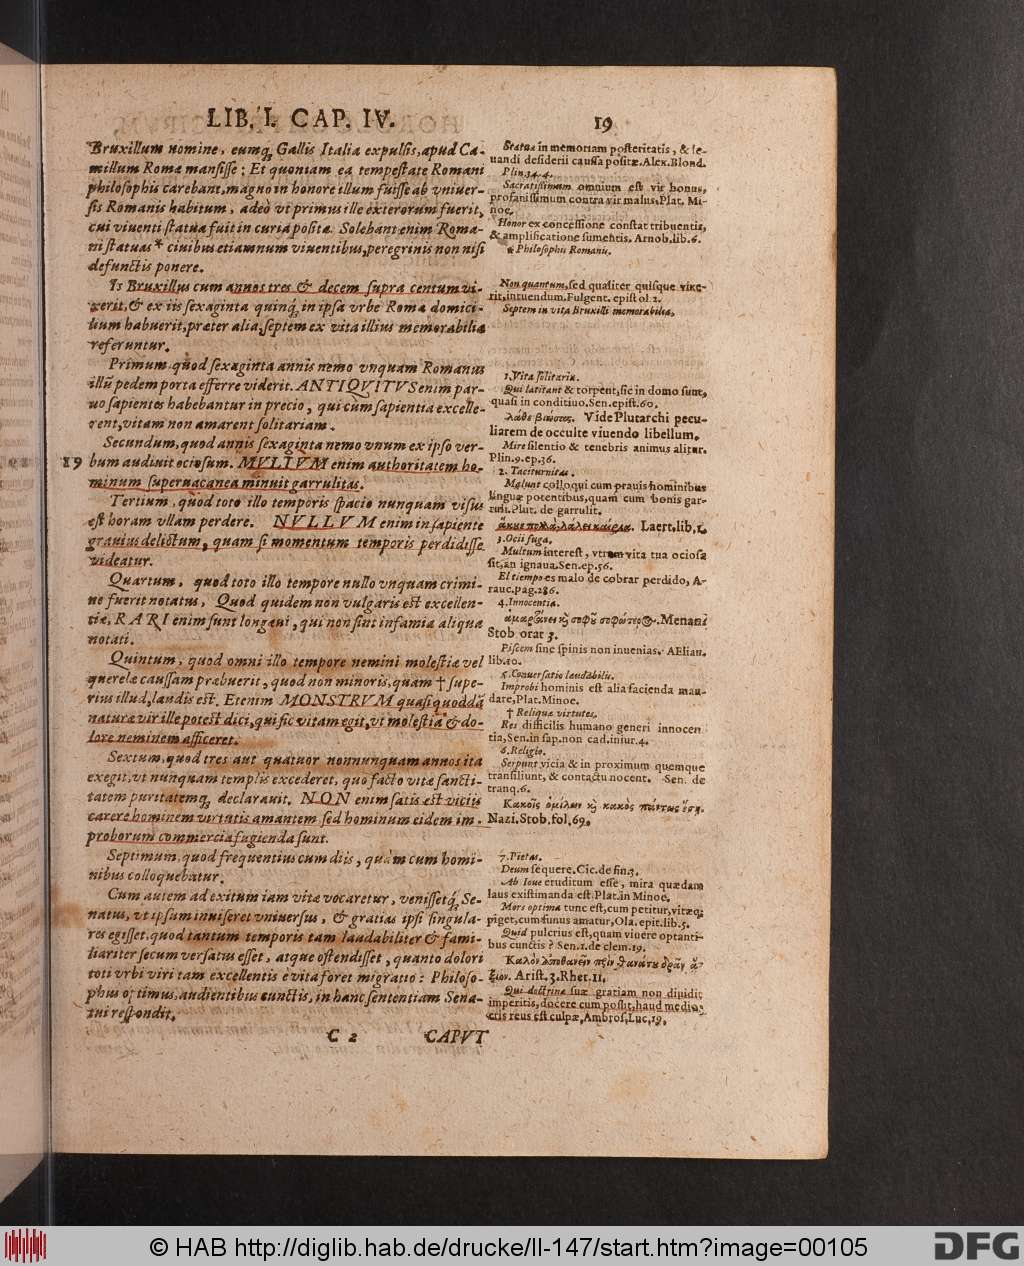 LIB. I. CAP. IV. 19
Bruxillum nomine, eumq́ Gallis Italia expulsis, apud Ca-
millum Romæ mansisse: Et quoniam ea tempestate Romani
philosophis carebant, magno in honore illum fuisse ab vniuer-
sis Romanis habitum, adeò vt primus ille exterorum fuerit,
cui viuenti statua fuit in curia posita. Solebant enim Roma-
ni statuas * ciuibus etiamnum viuentibus, peregrinis non nisi
defunctis ponere.
Is Bruxillus cum annos tres & decem supra centum vi-
xerit, & ex iis sexaginta quinq́, in ipsa vrbe Roma domici-
lium habuerit, præter alia, septem ex vita illius memorabilia
referuntur.
Primum, quòd sexaginta annis nemo vnquam Romanus
illū pedem porta efferre viderit. ANTIQVITVS enim par-
uo sapientes habebantur in precio, qui cùm sapientia excelle-
rent, vitam non amarent solitariam.
Secundum, quod annis sexaginta nemo vnum ex ipso ver-
19 bum audiuit ociosum. MVLTVM enim authoritatem ho-
minum superuacanea minuit garrulitas.
Tertium, quòd toto illo temporis spacio nunquam visus
est horam vllam perdere. NVLLVM enim in sapiente
grauius delictum, quam si momentum temporis perdidisse
videatur.
Quartum, quod toto illo tempore nullo vnquam crimi-
ne fuerit notatus, Quod quidem non vulgaris est excellen-
tiæ, RARI enim sunt longæui, qui non sint infamia aliqua
notati.
Quintum, quod omni illo tempore nemini molestiæ vel
querelæ caussam præbuerit, quod non minoris, quam † supe-
rius illud, laudis est. Etenim MONSTRVM quasi quoddā
naturæ vir ille potest dici, qui sic vitam egit, vt molestia & do-
lore neminem afficeret.
Sextum, quod tres aut quatuor nonnunquam annos ita
exegit, vt nunquam templis excederet, quo facto vitæ sancti-
tatem puritatemq́ declarauit. NON enim satis est viciis
carere hominem virtutis amantem sed hominum eidem im-
proborum commercia fugienda sunt.
Septimum, quod frequentius cum diis, quàm cum homi-
nibus colloquebatur.
Cum autem ad exitum iam vitæ vocaretur, venissetq́ Se-
natus, vt ipsum inuiseret vniuersus, & gratias ipsi singula-
res egisset, quod tantum temporis tam laudabiliter & fami-
liariter secum versatus esset, atque ostendisset, quanto dolori
toti vrbi viri tam excellentis è vita foret migratio: Philoso-
phus optimus, audientibus cunctis, in hanc sententiam Sena-
tui respondit.
C 2 CAPVT
Statuæ in memoriam posteritatis, & le-
uandi desiderii caussa positæ. Alex. Blond.
Plin. 34. 4.
Sacratissimum omnium est vir bonus,
profanissimum contra vir malus. Plat. Mi-
noe.
Honor ex concessione constat tribuentis,
& amplificatione sumentis. Arnob. lib. 6.
* Philosophis Romanis.
Non quantum, sed qualiter quisque vixe-
rit, intuendum. Fulgent. epist ol. 2.
Septem in vita Bruxilli memorabilia.
1. Vita solitaria.
Qui latitant & torpent, sic in domo sunt,
quasi in conditiuo. Sen. epist. 60.
λάθε βιώσας. Vide Plutarchi pecu-
liarem de occulte viuendo libellum.
Mire silentio & tenebris animus alitur.
Plin. 9. ep. 36.
2. Taciturnitas.
Malunt colloqui cum prauis hominibus
linguæ potentibus, quam cum bonis gar-
ruli. Plut. de garrulit.
ἄκυε πολλὰ, λάλει καίρια. Laert. lib. 1.
3. Ocii fuga.
Multum interest, vtrum vita tua ociosa
sit, an ignaua. Sen. ep. 56.
El tiempo es malo de cobrar perdido, A-
rauc. pag. 286.
4. Innocentia.
ἁμαρτάνει κὴ σοφȣ̃ σοφώτερος. Menand
Stob orat 3.
Piscem sine spinis non inuenias. AElian.
lib. 10.
5. Conuersatio laudabilis.
Improbi hominis est alia facienda man-
dare, Plat. Minoe.
† Reliquæ virtutes.
Res difficilis humano generi innocen
tia, Sen. in sap. non cad. iniur. 4.
6. Religio.
Serpunt vicia & in proximum quemque
transiliunt, & contactu nocent. Sen. de
tranq. 6.
Κακοῖς ὁμιλῶν κὴ κακὸς πάντως ἔσῃ.
Nazi. Stob. fol. 69.
7. Pietas.
Deum sequere. Cic. de fin. 3.
Ab Ioue eruditum esse, mira quædam
laus existimanda est. Plat. in Minoe.
Mors optima tunc est, cum petitur, vitæq;
piget, cum funus amatur, Ola. epit. lib. 5.
Quid pulcrius est, quam viuere optanti-
bus cunctis? Sen. 1. de clem. 19.
Καλὸν ἀποθανεῖν πρὶν θανάτȣ δρᾶν ἄ-
ξιον. Arist. 3. Rhet. 11.
Qui doctrinæ suæ gratiam non diuidit
imperitis, docere cum possit, haud medio-
cris reus est culpæ, Ambros. Luc. 19.
© HAB http://diglib.hab.de/drucke/ll-147/start.htm?image=00105
DFG